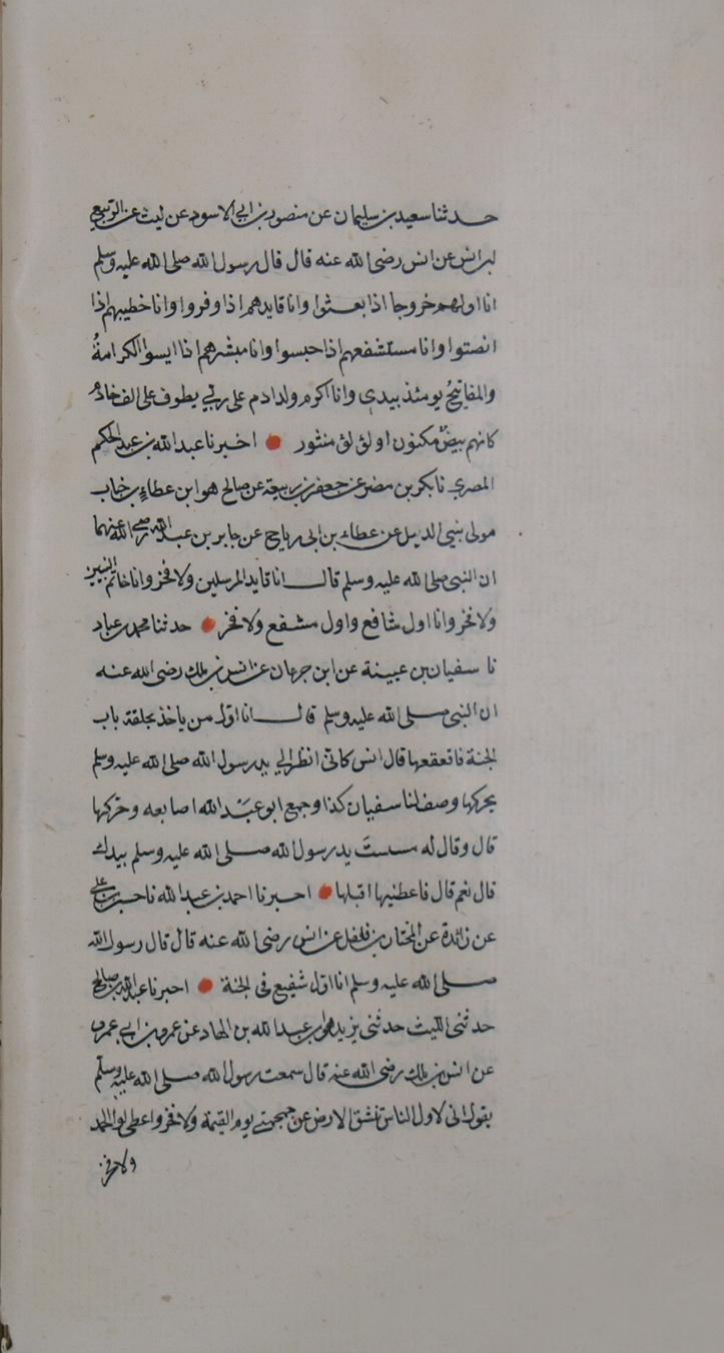 حدثنا سعيد بن سليمان عن منصور بن ابي الاسود عن ليث عن الربيع
ابن انس عن انس رضى الله عنه قال قال رسول الله صلى الله عليه وسلم
انا اولهم خروجا اذا بعثوا وانا قايدهم اذا وفروا وانا خطيبهم اذا
انصتوا وانا مستشفعهم اذا حبسوا وانا مبشرهم اذا ايسوا الكرامةُ
والمفاتيحُ يومئذ بيدى وانا اكرم ولد ادم على ربي يطوف على الف خادم
كانهم بيضٌ مكنون او لؤلؤ منثور ● اخبرنا عبد الله بن عبد الحكم
المصري نا بكر بن مضر عن جعفر بن ربيعة عن صالح هو ابن عطاء بن خباب
مولى بني الديل عن عطاء بن ابى رباح عن جابر بن عبد الله رضي الله عنهما
ان النبى صلى الله عليه وسلم قال انا قايد المرسلين ولا فخر وانا خاتم النبيين
ولا فخر وانا اول شافع واول مشفع ولا فخر ● حدثنا محمد بن عباد
نا سفيان بن عيينة عن ابن جدعان عن انس بن ملك رضى الله عنه
ان النبى صلى الله عليه وسلم قال انا اول من ياخذ بحلقة باب
الجنة فاقعقعها قال انس كانى انظر الي يد رسول الله صلى الله عليه وسلم
يحركها وصف لنا سفيان كذا وجمع ابو عبد الله اصابعه وحركها
قال وقال له مسستَ يد رسول الله صلى الله عليه وسلم بيدك
قال نعم قال فاعطنيها اقبلها ● اخبرنا احمد بن عبد الله نا حسين بن على
عن زائدة عن المختار بن فلفل عن انس رضى الله عنه قال قال رسول الله
صلى الله عليه وسلم انا اول شفيع فى الجنة ● اخبرنا عبد الله بن صالح
حدثنى الليث حدثنى يزيد هو ابن عبد الله بن الهاد عن عمرو بن ابي عمرو
عن انس بن ملك رضى الله عنه قال سمعت رسول الله صلى الله عليه وسلم
يقول انى لاول الناس تنشق الارض عن جمجمتي يوم القيمة ولا فخر واعطى لواء الحمد
ولا فخر